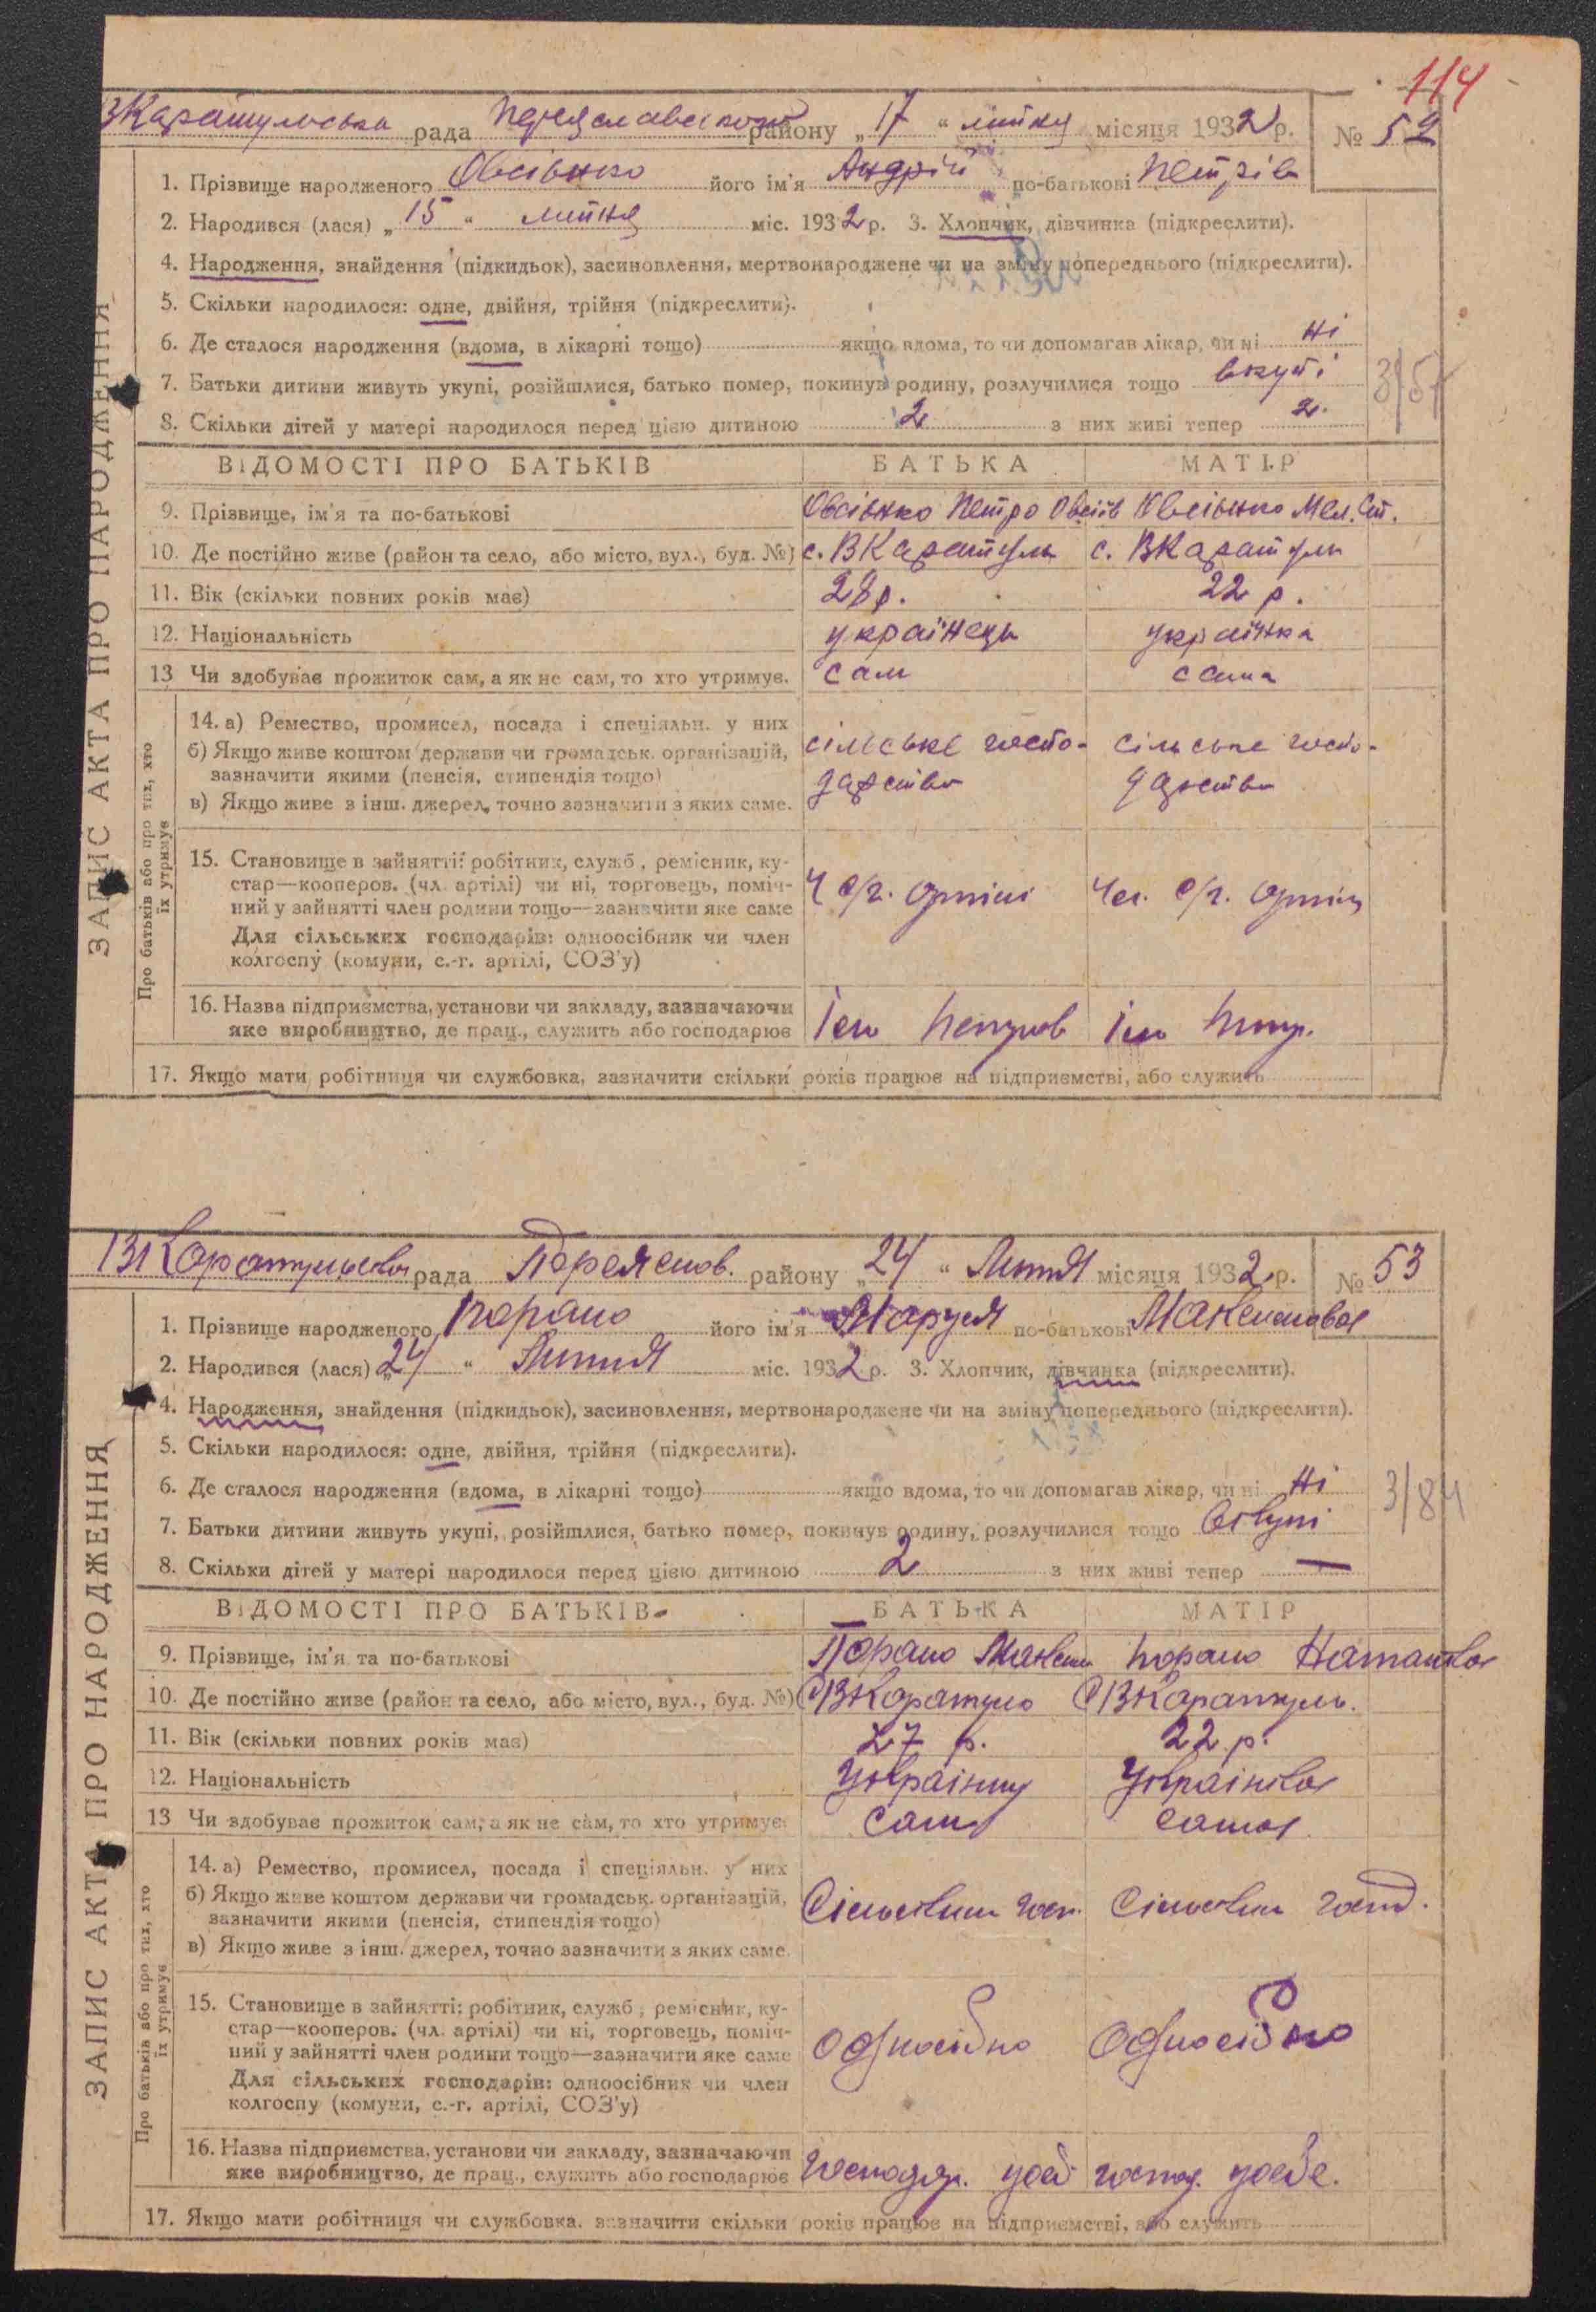 114
ВКаратульська рада Переяславського району „17“ липня місяця 1932 р. № 52
1. Прізвище народженого Овсієнко його ім'я Андрій по-батькові Петрів
2. Народився (лася) „15“ липня міс. 1932 р. 3. Хлопчик, дівчинка (підкреслити).
4. Народження, знайдення (підкидьок), засиновлення, мертвонароджене чи на зміну попереднього (підкреслити).
5. Скільки народилося: одне, двійня, трійня (підкреслити).
6. Де сталося народження (вдома, в лікарні тощо) якщо вдома, то чи допомагав лікар, чи ні ні
7. Батьки дитини живуть укупі, розійшлися, батько помер, покинув родину, розлучилися тощо вкупі
8. Скільки дітей у матері народилося перед цією дитиною 2 з них живі тепер 2.
3/57
ЗАПИС АКТА ПРО НАРОДЖЕННЯ
ВІДОМОСТІ ПРО БАТЬКІВ БАТЬКА МАТІР
9. Прізвище, ім'я та по-батькові Овсієнко Петро Овсіїв Овсієнко Мел. Ст.
10. Де постійно живе (район та село, або місто, вул., буд. №) с. ВКаратуль с. ВКаратуль
11. Вік (скільки повних років має) 28 р. 22 р.
12. Національність українець українка
13 Чи здобуває прожиток сам, а як не сам, то хто утримує. сам сама
Про батьків або про тих, хто їх утримує
14. а) Ремество, промисел, посада і спеціяльн. у них
б) Якщо живе коштом держави чи громадськ. організацій, сільське госпо- сільське госпо-
зазначити якими (пенсія, стипендія тощо) дарство дарство
в) Якщо живе з інш. джерел, точно зазначити з яких саме.
15. Становище в зайнятті: робітник, служб., ремісник, ку-
стар—кооперов. (чл. артілі) чи ні, торговець, поміч- Ч с/г. артілі Чл. с/г. артіл
ний у зайнятті член родини тощо—зазначити яке саме
Для сільських господарів: одноосібник чи член
колгоспу (комуни, с.-г. артілі, СОЗ'у)
16. Назва підприємства, установи чи закладу, зазначаючи
яке виробництво, де прац., служить або господарює
17. Якщо мати робітниця чи службовка, зазначити скільки років працює на підприємстві, або служить
ВКаратульська рада Переяслов. району „24“ Липня місяця 1932 р. № 53
1. Прізвище народженого його ім'я Маруся по-батькові Максимовна
2. Народився (лася) „24“ Липня міс. 1932 р. 3. Хлопчик, дівчинка (підкреслити).
4. Народження, знайдення (підкидьок), засиновлення, мертвонароджене чи на зміну попереднього (підкреслити).
5. Скільки народилося: одне, двійня, трійня (підкреслити).
6. Де сталося народження (вдома, в лікарні тощо) якщо вдома, то чи допомагав лікар, чи ні Ні
7. Батьки дитини живуть укупі, розійшлися, батько помер, покинув родину, розлучилися тощо Вкупі
8. Скільки дітей у матері народилося перед цією дитиною 2 з них живі тепер —
3/84
ЗАПИС АКТА ПРО НАРОДЖЕННЯ
ВІДОМОСТІ ПРО БАТЬКІВ БАТЬКА МАТІР
9. Прізвище, ім'я та по-батькові Максим Наталка
10. Де постійно живе (район та село, або місто, вул., буд. №) С ВКаратуль С ВКаратуль.
11. Вік (скільки повних років має) 27 р. 22 р.
12. Національність Українец Українка
13 Чи здобуває прожиток сам, а як не сам, то хто утримує. Сам Сама
Про батьків або про тих, хто їх утримує
14. а) Ремество, промисел, посада і спеціяльн. у них
б) Якщо живе коштом держави чи громадськ. організацій, Сільським госп. Сільським госпд.
зазначити якими (пенсія, стипендія тощо)
в) Якщо живе з інш. джерел, точно зазначити з яких саме.
15. Становище в зайнятті: робітник, служб., ремісник, ку-
стар—кооперов. (чл. артілі) чи ні, торговець, поміч-
ний у зайнятті член родини тощо—зазначити яке саме Одноосібно Одноосібно
Для сільських господарів: одноосібник чи член
колгоспу (комуни, с.-г. артілі, СОЗ'у)
16. Назва підприємства, установи чи закладу, зазначаючи
яке виробництво, де прац., служить або господарює Господар. усеб господ. усебе.
17. Якщо мати робітниця чи службовка, зазначити скільки років працює на підприємстві, або служить